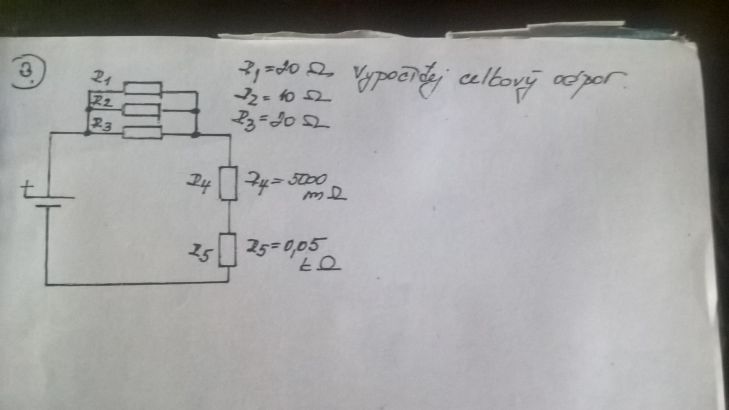 3.
R1 R1=20 Ω Vypočítej celkový odpor.
R2 R2=10 Ω
R3 R3=20 Ω
+
R4 R4=5000
mΩ
R5 R5=0,05
kΩ